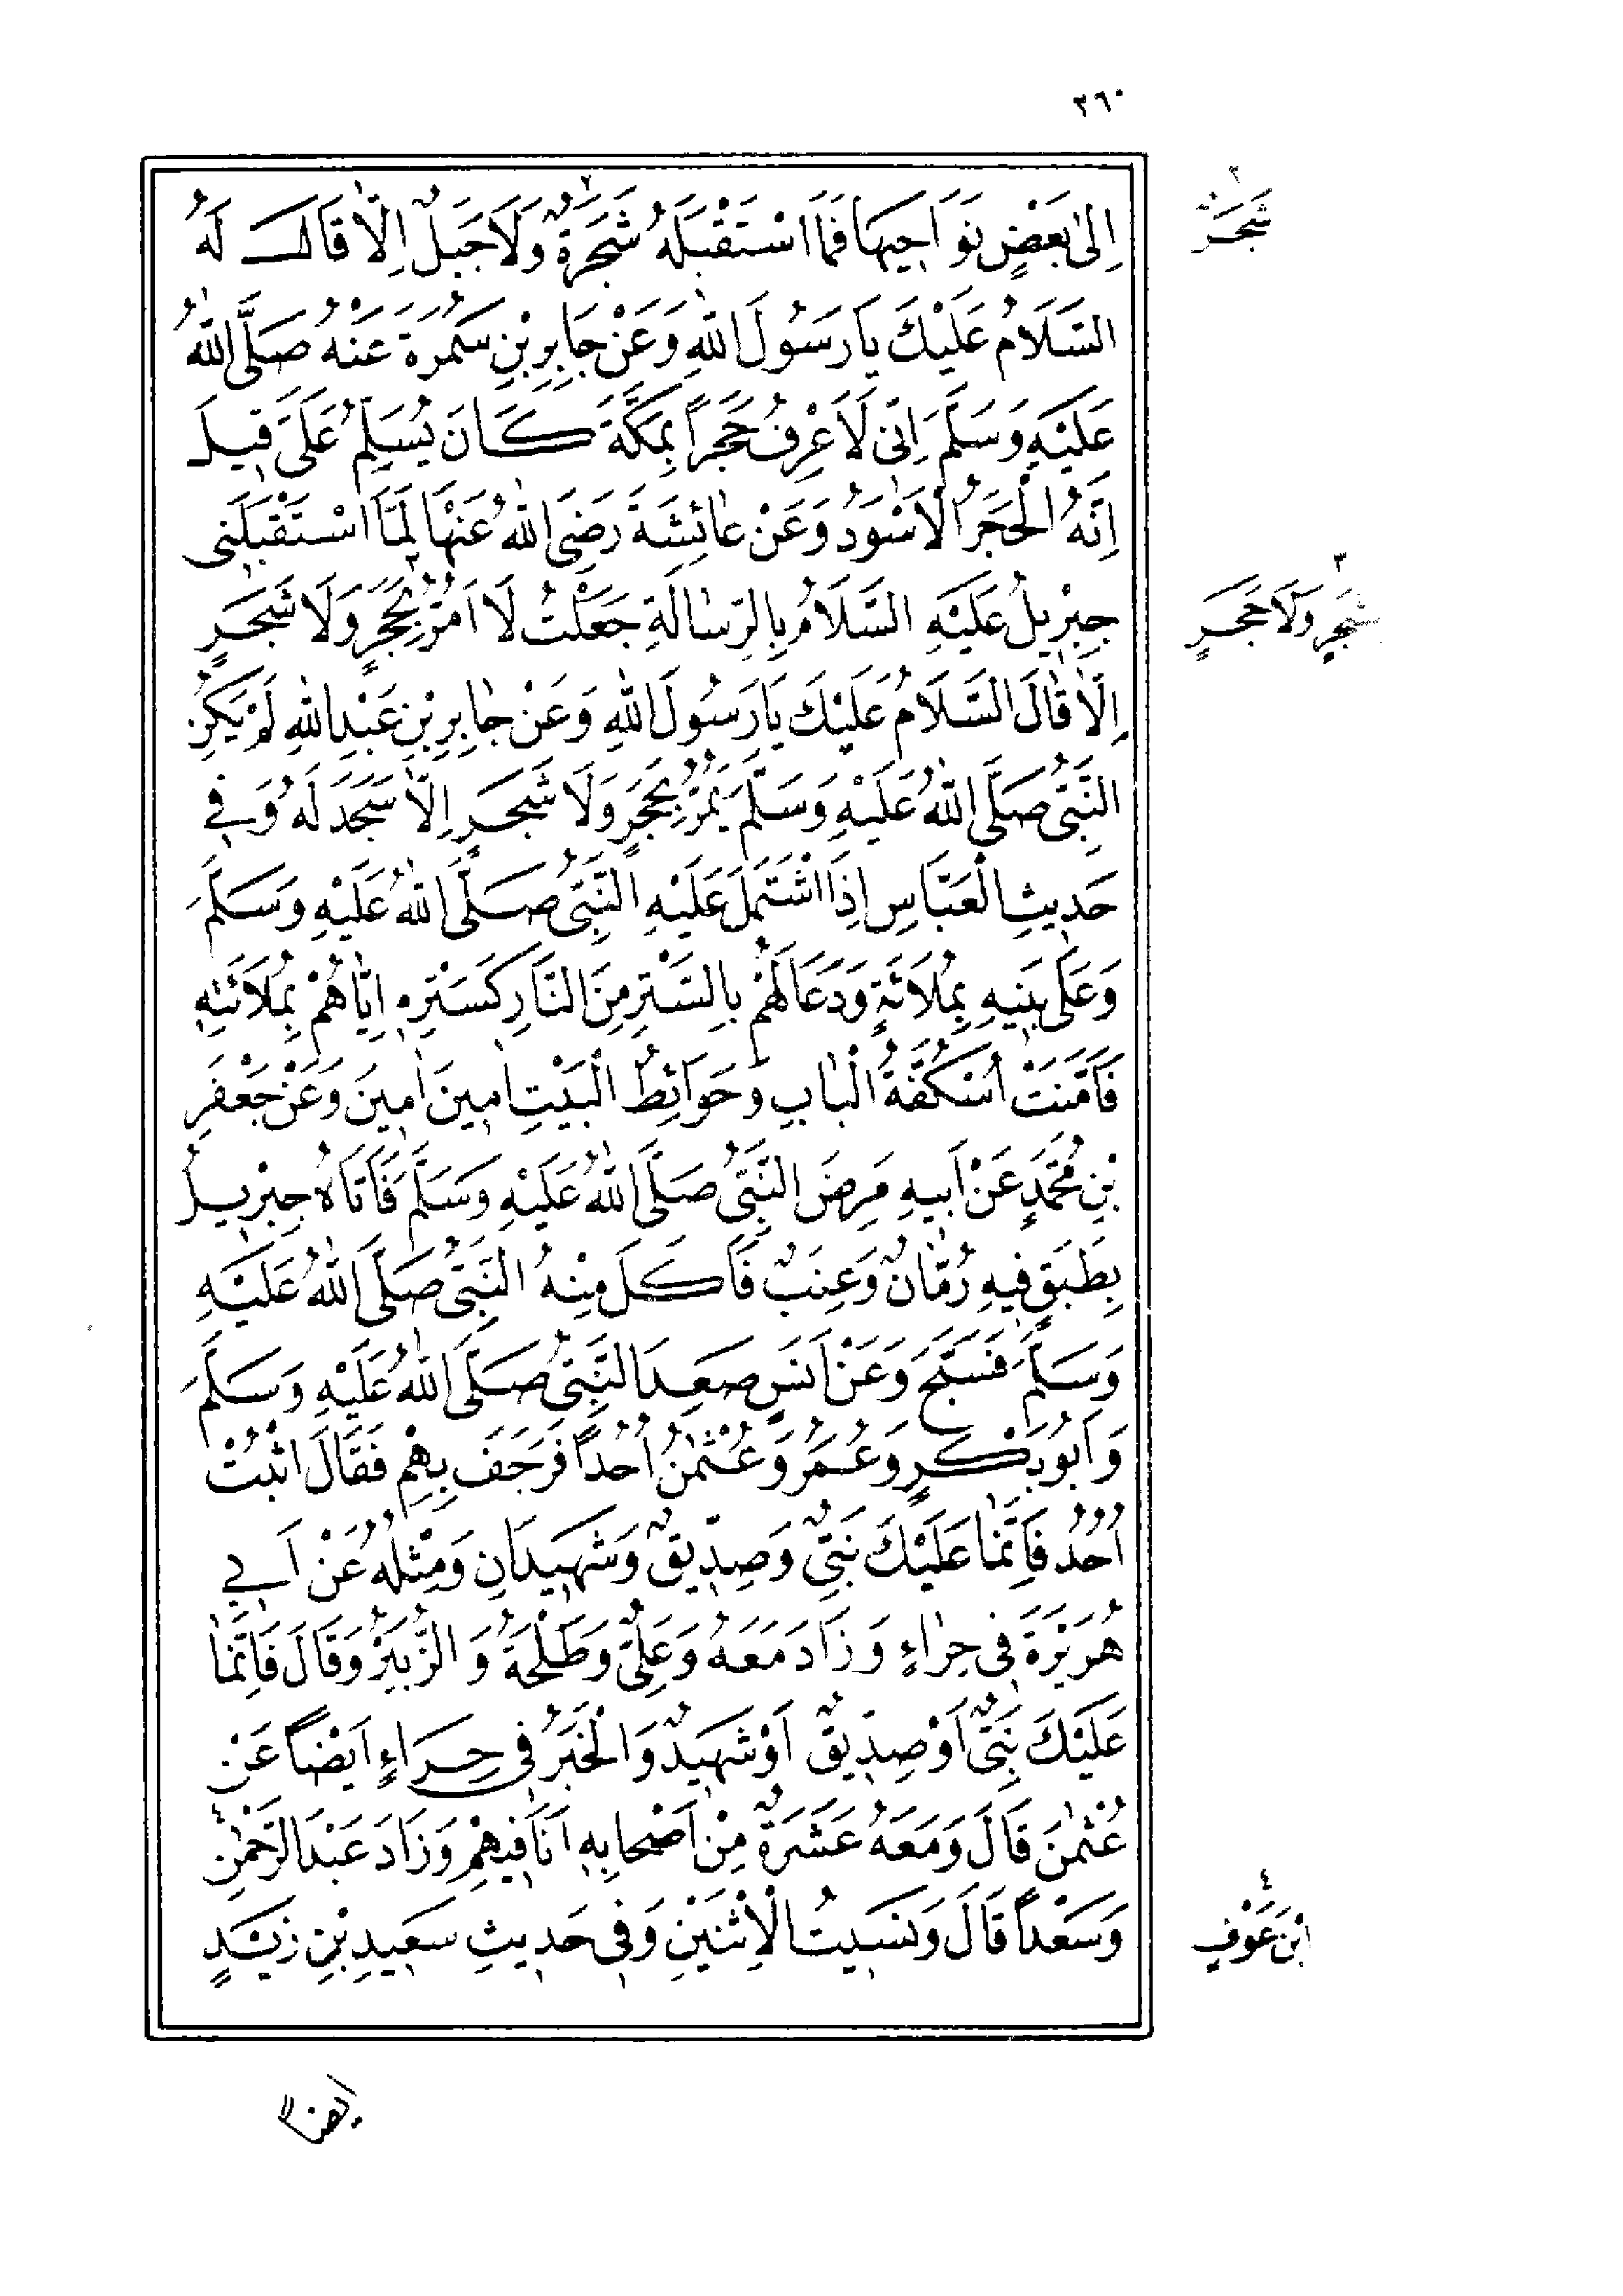 ٢٦٠
إِلىٰ بَعْضِ نَوَاحِيهَا فَمَا اسْتَقْبَلَهُ شَجَرَةٌ وَلَا جَبَلٌ اِلَّا قَالَ لَهُ
السَّلَامُ عَلَيْكَ يَا رَسُولَ اللهِ وَعَنْ جَابِرِ بْنِ سَمُرَةَ عَنْهُ صَلَّى اللهُ
عَلَيْهِ وَسَلَّمَ اِنّى لَاَعْرِفُ حَجَرًا بِمَكَّةَ كَانَ يُسَلِّمُ عَلَىَّ قِيلَ
اِنَّهُ الْحَجَرُ الْاَسْوَدُ وَعَنْ عَائِشَةَ رَضِىَ اللهُ عَنْهَا لَمَّا اسْتَقْبَلَنِى
جِبْرِيلُ عَلَيْهِ السَّلَامُ بِالرِّسَالَةِ جَعَلْتُ لَا اَمُرُّ بِحَجَرٍ وَلَا شَجَرٍ
اِلَّا قَالَ السَّلَامُ عَلَيْكَ يَا رَسُولَ اللهِ وَعَنْ جَابِرِ بْنِ عَبْدِ اللهِ لَمْ يَكُنِ
النَّبِىُّ صَلَّى اللهُ عَلَيْهِ وَسَلَّمَ يَمُرُّ بِحَجَرٍ وَلَا شَجَرٍ اِلَّا سَجَدَ لَهُ وَفِى
حَدِيثِ الْعَبَّاسِ اِذَا اشْتَمَلَ عَلَيْهِ النَّبِىُّ صَلَّى اللهُ عَلَيْهِ وَسَلَّمَ
وَعَلٰى بَنِيهِ بِمُلَائَةٍ وَدَعَا لَهُمْ بِالسَّتْرِ مِنَ النَّارِ كَسَتْرِهِ اِيَّاهُمْ بِمُلَائَتِهِ
فَاَمَّنَتْ اُسْكُفَّةُ الْبَابِ وَحَوَائِطُ الْبَيْتِ اٰمِينَ اٰمِينَ وَعَنْ جَعْفَرِ
بْنِ مُحَمَّدٍ عَنْ اَبِيهِ مَرِضَ النَّبِىُّ صَلَّى اللهُ عَلَيْهِ وَسَلَّمَ فَاَتَاهُ جِبْرِيلُ
بِطَبَقٍ فِيهِ رُمَّانٌ وَعِنَبٌ فَاَكَلَ مِنْهُ النَّبِىُّ صَلَّى اللهُ عَلَيْهِ
وَسَلَّمَ فَسَبَّحَ وَعَنْ اَنَسٍ صَعِدَ النَّبِىُّ صَلَّى اللهُ عَلَيْهِ وَسَلَّمَ
وَاَبُو بَكْرٍ وَعُمَرُ وَعُثْمٰنُ اُحُدًا فَرَجَفَ بِهِمْ فَقَالَ اثْبُتْ
اُحُدُ فَاِنَّمَا عَلَيْكَ نَبِىٌّ وَصِدِّيقٌ وَشَهِيدَانِ وَمِثْلُهُ عَنْ اَبِي
هُرَيْرَةَ فِى حِرَاءٍ وَزَادَ مَعَهُ وَعَلِىٌّ وَطَلْحَةُ وَالزُّبَيْرُ وَقَالَ فَاِنَّمَا
عَلَيْكَ نَبِىٌّ اَوْ صِدِّيقٌ اَوْ شَهِيدٌ وَالْخَبَرُ فِى حِرَاءٍ اَيْضًا عَنْ
عُثْمٰنَ قَالَ وَمَعَهُ عَشَرَةٌ مِنْ اَصْحَابِهِ اَنَا فِيهِمْ وَزَادَ عَبْدَ الرَّحْمٰنِ
وَسَعْدًا قَالَ وَنَسِيتُ الْاِثْنَيْنِ وَفِى حَدِيثِ سَعِيدِ بْنِ زَيْدٍ
٢
شَجَرٌ
٣
شَجَرٍ وَلَا حَجَرٍ
٤
ابْنَ عَوْفٍ
ايضا